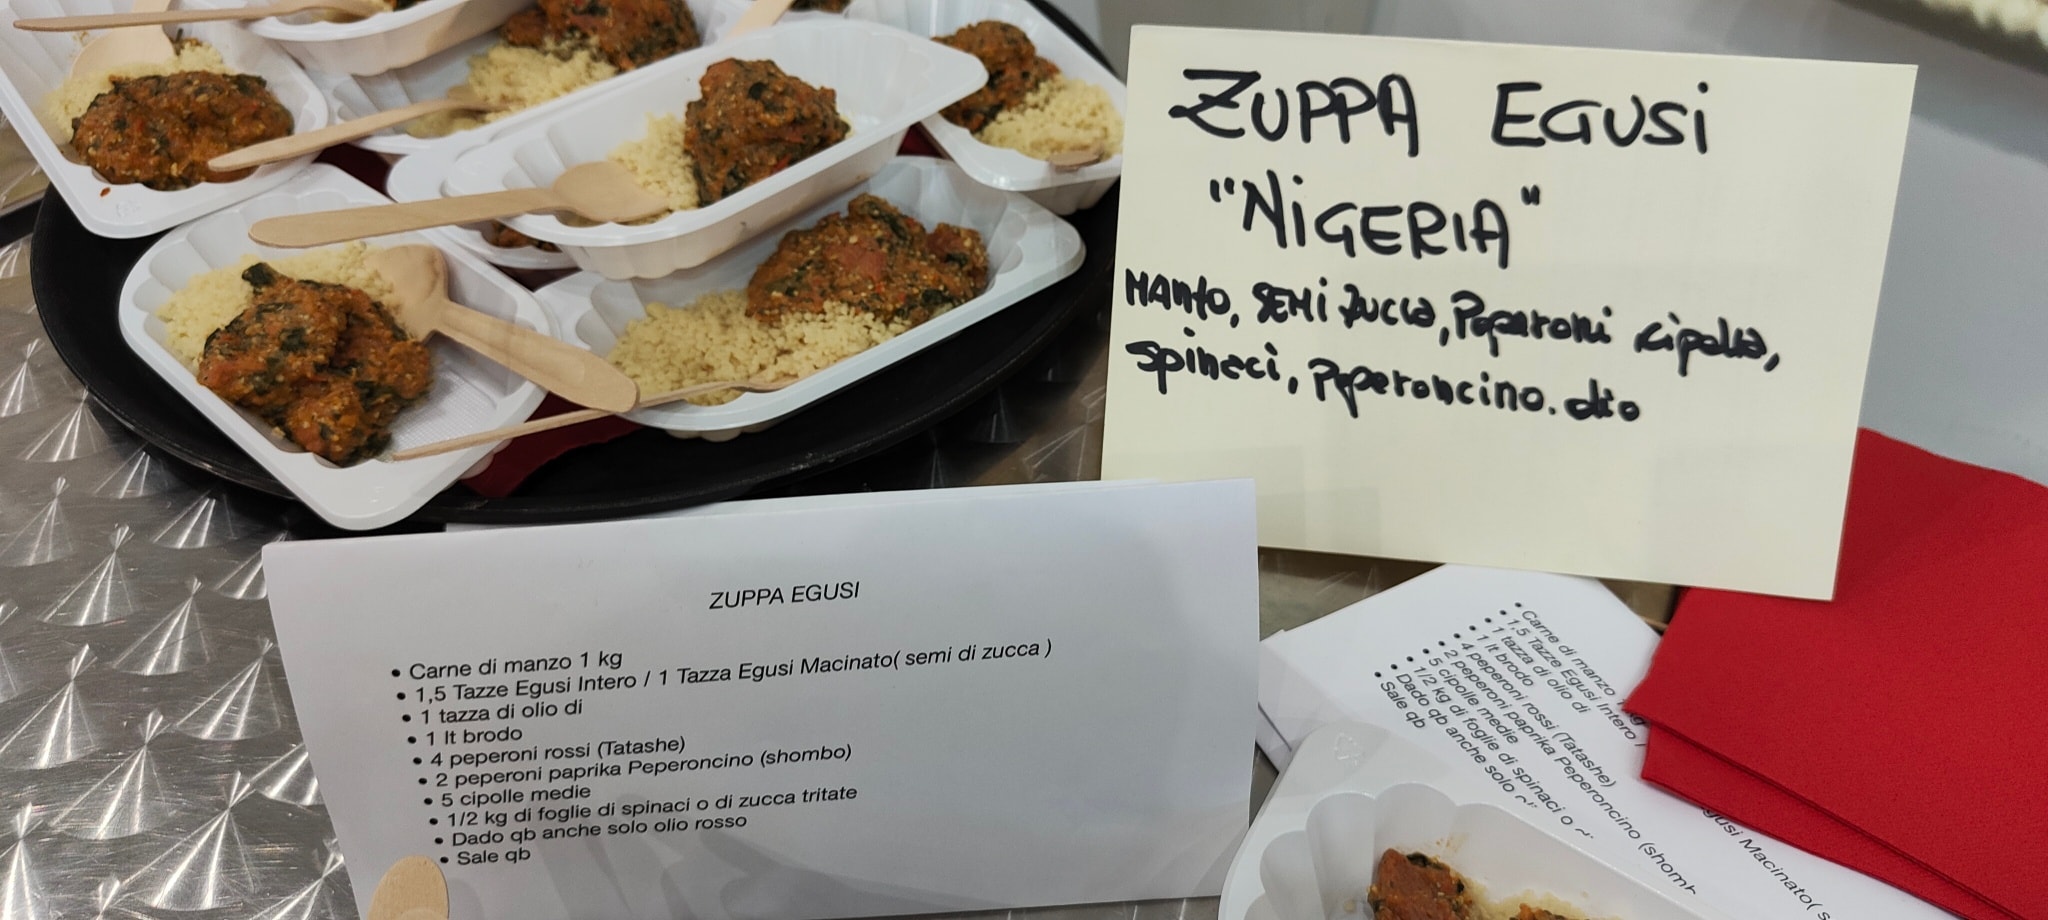 ZUPPA EGUSI
"NIGERIA"
MANZO, SEMI ZUCCA, Peperoni cipolla,
spinaci, peperoncino. olio
ZUPPA EGUSI
• Carne di manzo 1 kg
• 1,5 Tazze Egusi Intero / 1 Tazza Egusi Macinato( semi di zucca )
• 1 tazza di olio di
• 1 lt brodo
• 4 peperoni rossi (Tatashe)
• 2 peperoni paprika Peperoncino (shombo)
• 5 cipolle medie
• 1/2 kg di foglie di spinaci o di zucca tritate
• Dado qb anche solo olio rosso
• Sale qb
• Carne di manzo
• 1,5 Tazze Egusi Intero /
• 1 tazza di olio di
• 1 lt brodo
• 4 peperoni rossi (Tatashe)
• 2 peperoni paprika Peperoncino (shomb
• 5 cipolle medie
• 1/2 kg di foglie di spinaci o
• Dado qb anche solo
• Sale qb
gusi Macinato( s